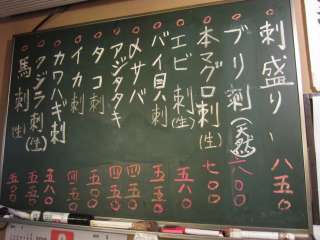 刺盛り 一八五〇
ブリ刺(天然) 六〇〇
本マグロ刺(生) 七〇〇
エビ刺(生) 五八〇
バイ貝刺 五五〇
〆サバ 四五〇
アジタタキ 四五〇
タコ刺 五五〇
イカ刺 四五〇
カワハギ刺
クジラ刺(生) 五五〇
馬刺(生) 五五〇